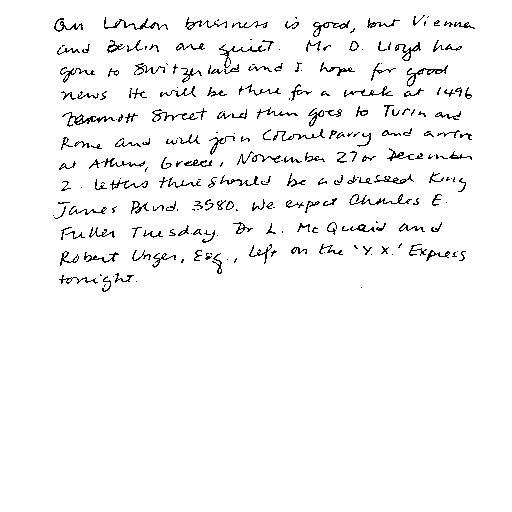 Our London business is good, but Vienna
and Berlin are quiet. Mr D. Lloyd has
gone to Switzerland and I hope for good
news He will be there for a week at 1496
Zermott Street and then goes to Turin and
Rome and will join Colonel Parry and arrive
at Athens, Greece, November 27 or December
2. letters there should be addressed King
James Blvd. 3580. We expect Charles E.
Fuller Tuesday. Dr L. McQuaid and
Robert Unger, Esq., left on the 'Y.X.' Express
tonight.